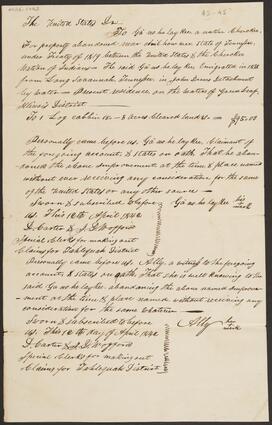 The United States Dr
To Gá us he lay kee, a native Cherokee
For property abandoned was what now is State of Tennessee
under Treaty of 1819 between the United States & the Cherokee
Nation of Indians — The said Gá us he lay kee Emigrated in 1838
from Long Savannah Tennessee in John Drews Detachment
by water — Present residence on the waters of
Illinois District —
To 1 Log cabin 10 — 8 acres cleared land at — $95.00
Personally came before us, Gá us he lay kee, Claimant of
the foregoing account & states on oath That he aban-
doned the above improvement at the time & place named
without ever receiving any consideration for the same
of the United States or any other source —
Sworn & subscribed to before Gá us he lay kee his
us, This 12th April 1842 mark
D. Carter & J. D. Wofford
Special Clerks for making out
Claims for Tahlequah District
Personally came before us, Ally, a witness to the foregoing
account & states on oath, That she is well knowing to the
said Gá us he lay kee abandoning the above named improve-
ment at the time & place named without receiving any
consideration for the same whatever —
Sworn & subscribed to before
us, This 12th day of April 1842 Ally her
D. Carter & J. D. Wofford mark
Special Clerks for making out
Claims for Tahlequah District